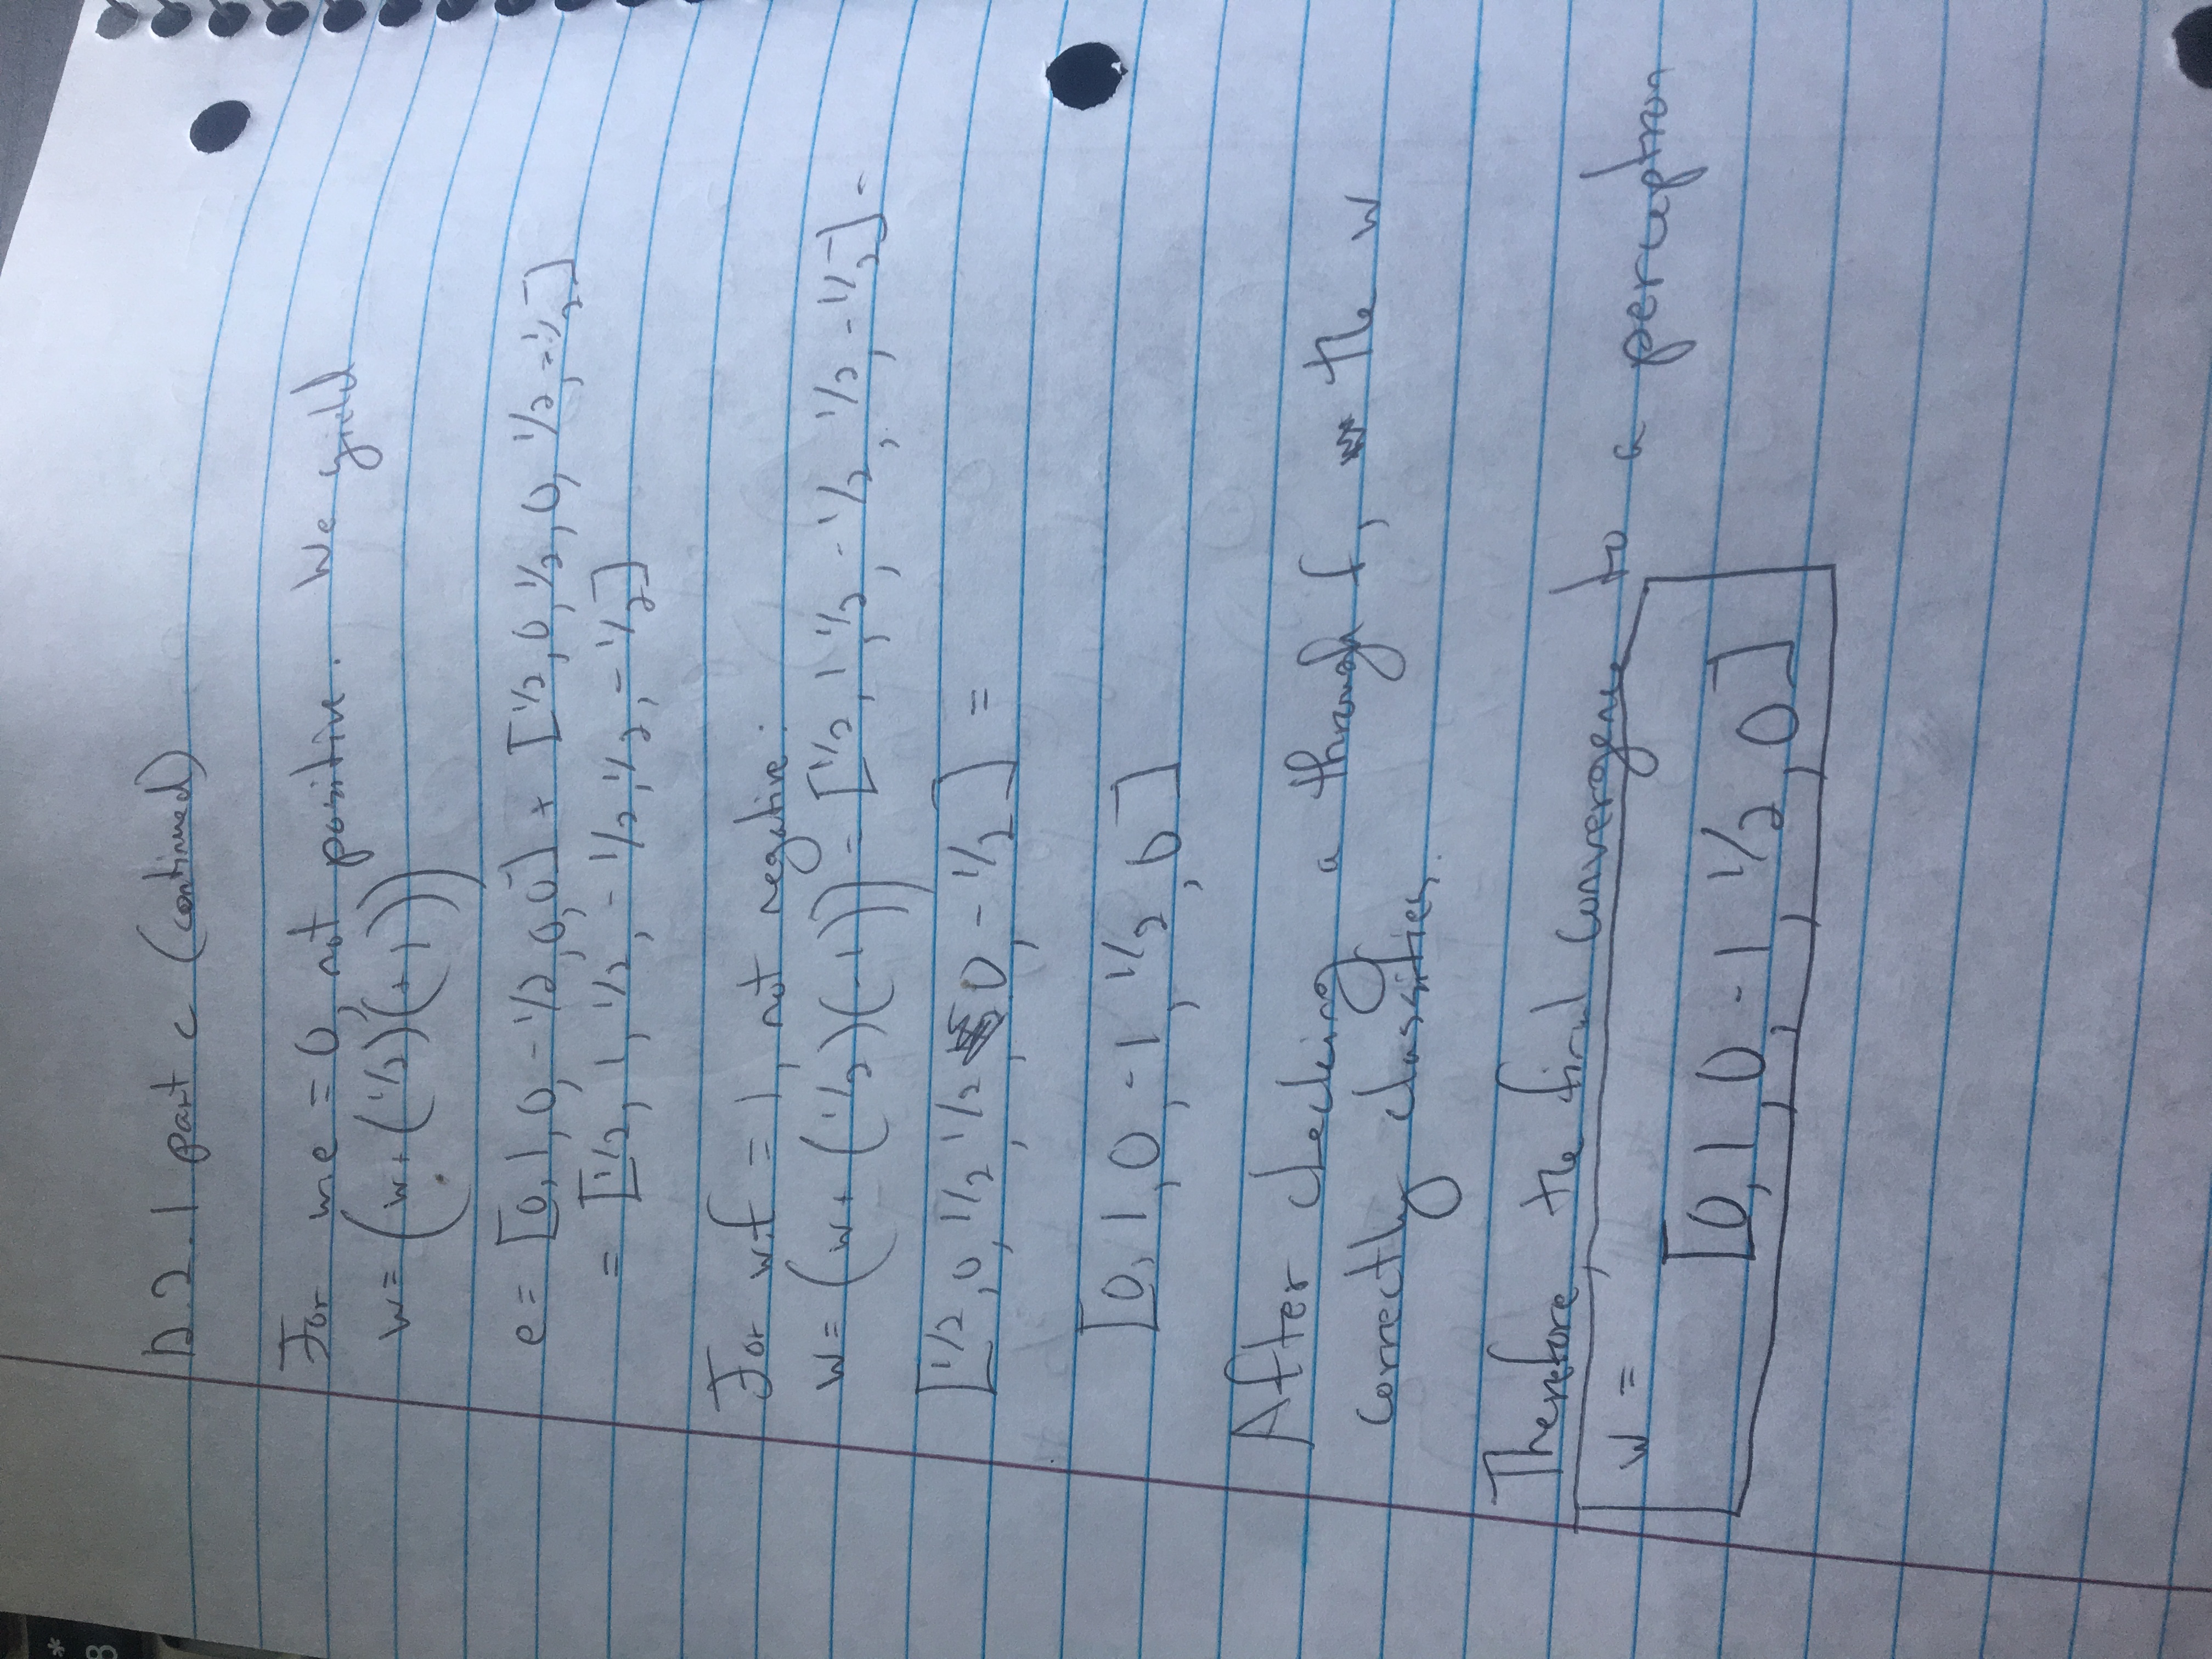 12.2.1 part c (continued)
For w.e = 0, not positive. We yield
w = (w + (1/2)(+1))
e = [0, 1, 0, -1/2, 0, 0] + [1/2, 0, 1/2, 0, 1/2, -1/2]
= [1/2, 1, 1/2, -1/2, 1/2, -1/2]
For w.f = 1, not negative:
w = (w + (1/2)(-1)) = [1/2, 1, 1/2, -1/2, 1/2, -1/2] -
[1/2, 0, 1/2, 1/2, 0, -1/2] =
[0, 1, 0, -1, 1/2, 0]
After checking a through f, the w
correctly classifies.
Therefore, the final convergence to a perceptron
w =
[0, 1, 0, -1, 1/2, 0]
*
8